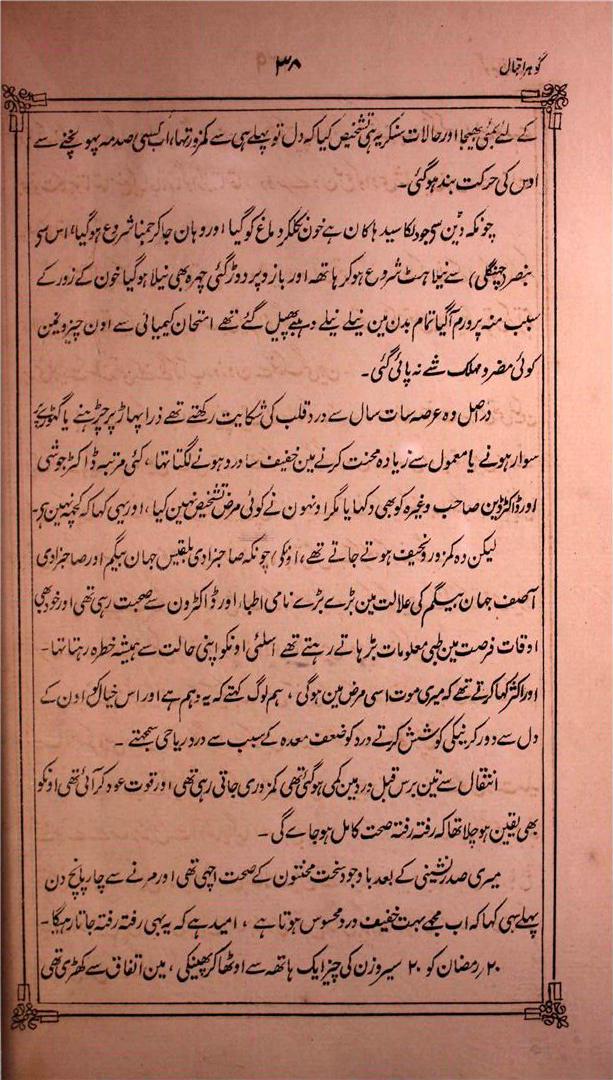 گوہر اقبال
۳۸
کے لئے بمبئی بھیجا اور حالات سنکر یہی تشخیص کیا کہ دل تو پہلے ہی سے کمزور تھا، اب کسی صدمہ پہونچنے سے
اوس کی حرکت بند ہوگئی۔
چونکہ وہین سی جو دلکا سیدہا کان ہے خون نکلکر دماغ کو گیا اور وہان جاکر جمنا شروع ہوگیا، اس سی
بنصر (چنگلی) سے نیلاہٹ شروع ہوکر ہاتھہ اور بازو پر دوڑ گئی چہرہ بھی نیلا ہوگیا خون کے زور کے
سبب منہ پر ورم آگیا تمام بدن مین نیلے نیلے دہبے پھیل گئے تھے امتحان کیمیائی سے اون چیزونمین
کوئی مضر و مہلک شے نہ پائی گئی۔
دراصل وہ عرصہ سات سال سے درد قلب کی شکایت رکھتے تھے ذرا پہاڑ پر چڑہنے یا گھوڑے پر
سوار ہونے یا معمول سے زیادہ محنت کرنے مین خفیف سا درد ہونے لگتا تھا، کئی مرتبہ ڈاکٹر جوشی
اور ڈاکٹر ڈین صاحب وغیرہ کو بھی دکھایا مگر اونہون نے کوئی مرض تشخیص نہین کیا، اور یہی کہا کہ کچھ نہین ہے۔
لیکن وہ کمزور و نحیف ہوتے جاتے تھے، اونکو چونکہ صاحبزادی بلقیس جہان بیگم اور صاحبزادی
آصف جہان بیگم کی علالت مین بڑے بڑے نامی اطبا، اور ڈاکٹرون سے صحبت رہی تھی اور خود بھی
اوقات فرصت مین طبی معلومات بڑہاتے رہتے تھے اسلئی اونکو اپنی حالت سے ہمیشہ خطرہ رہتا تھا۔
اور اکثر کہا کرتے تھے کہ میری موت اسی مرض مین ہوگی، ہم لوگ کہتے کہ یہ وہم ہے اور اس خیال کو اون کے
دل سے دور کرنیکی کوشش کرتے درد کو ضعف معدہ کے سبب سے درد ریاحی سمجھتے۔
انتقال سے تین برس قبل درد مین کمی ہوگئی تھی کمزوری جاتی رہی تھی اور قوت عود کر آئی تھی اونکو
بھی یقین ہو چلا تھا کہ رفتہ رفتہ صحت کامل ہو جاے گی۔
میری صدر نشینی کے بعد باوجود سخت محنتون کے صحت اچھی تھی اور مرنے سے چار پانچ دن
پہلے ہی کہا کہ اب مجھے بہت خفیف درد محسوس ہوتا ہے، امید ہے کہ یہ بھی رفتہ رفتہ جاتا رہیگا۔
۲۰؍ رمضان کو ۲۰ سیر وزن کی چیز ایک ہاتھہ سے اوٹھا کر پھینکی، مین اتفاق سے کھڑی تھی